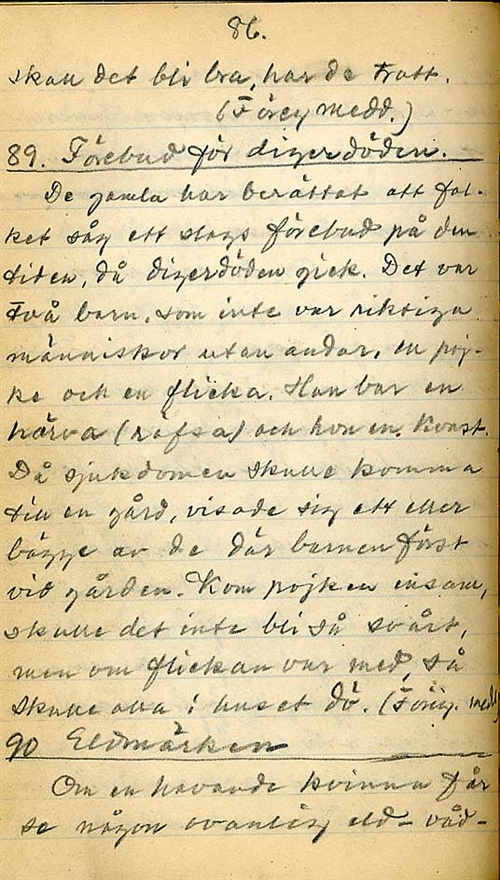 86.
skall det bli bra, har de trott.
(Föreg medd.)
89. Förebud för digerdöden.
De gamla har berättat att fol-
ket såg ett slags förebud på den
tiden, då digerdöden gick. Det var
två barn, som inte var riktiga
människor utan andar, en poj-
ke och en flicka. Han bar en
härva (räfsa) och hon en kvast.
Då sjukdomen skulle komma
till en gård, visade sig ett eller
bägge av de där barnen först
vid gården. Kom pojken ensam,
skulle det inte bli så svårt,
men om flickan var med, så
skulle alla i huset dö. (Föreg. medd
90 Eldmärken
Om en havande kvinna får
se någon ovanlig eld - våd-